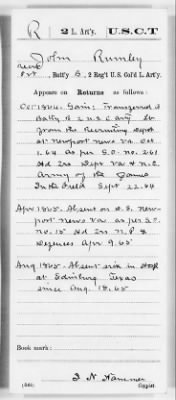 R 2 L. Art'y. U.S.C.T
John Rumley
Pvt., Batt'y B, 2 Reg't U.S. Col'd L. Art'y.
Appears on Returns as follows:
Oct 1864. Gain: Transferred to
Batty B 2 U.S.C. Art Lt
from the Recruiting Depot
at Newport news Va. Oct.
1.64 as per S.O. no. 261
Hd Qrs Dept Va & N.C.
Army of the James
In the Field Sept 22.64
Apr 1865. Absent on D.S. New-
port news Va. as per S.O.
no. 15 Hd Qrs N.P. &
Defences Apr 9.65
Aug 1865. Absent sick in Hosp
at Edinburg Texas
since Aug. 18.65
Book mark:
(546) Copyist.